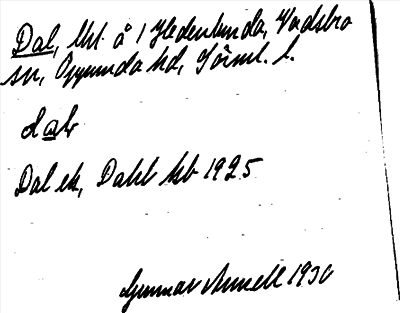 Dal, lht. å 1 Hedenlunda, Vadsbro
sn, Oppunda hd, Sörml. l.
dɑ̀l
Dal ek, Dahl kb 1925
Gunnar Arnell 1930